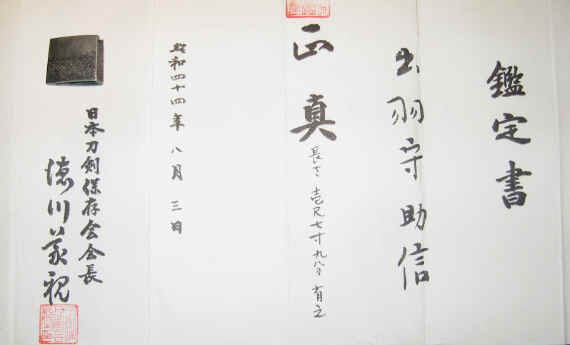 鑑定書
出羽守助信
正真
長さ壱尺七寸九分有之
昭和四十四年八月三日
日本刀剣保存会会長
徳川義親